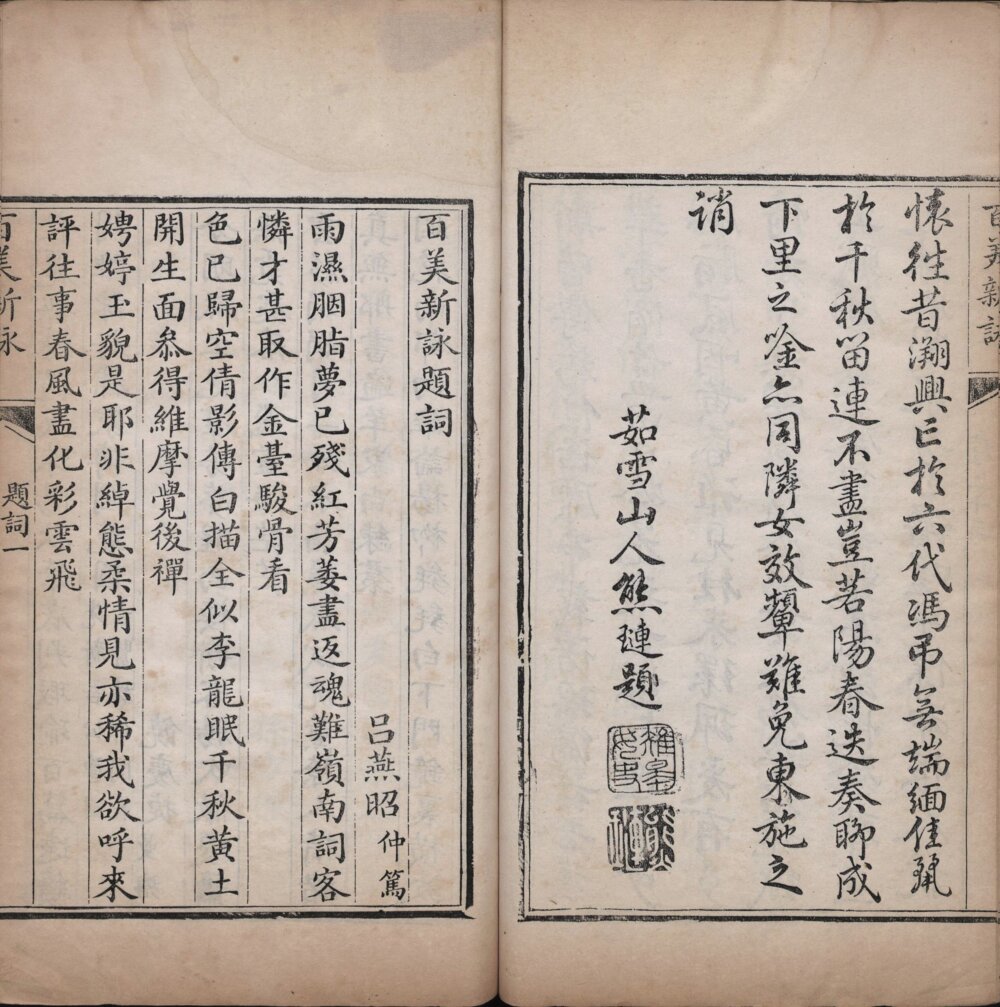 百美新詠
懷往昔溯興亡於六代馮弔無端緬佳麗
於千秋留連不盡豈若陽春迭奏聊成
下里之唫亦同隣女效顰難免東施之
誚
茹雪山人熊璉題
百美新詠題詞
呂燕昭 仲篤
雨濕胭脂夢已殘紅芳萎盡返魂難嶺南詞客
憐才甚取作金臺駿骨看
色已歸空倩影傳白描全似李龍眠千秋黃土
開生面叅得維摩覺後禪
娉婷玉貌是耶非綽態柔情見亦稀我欲呼來
評往事春風盡化彩雲飛
百美新詠
題詞一